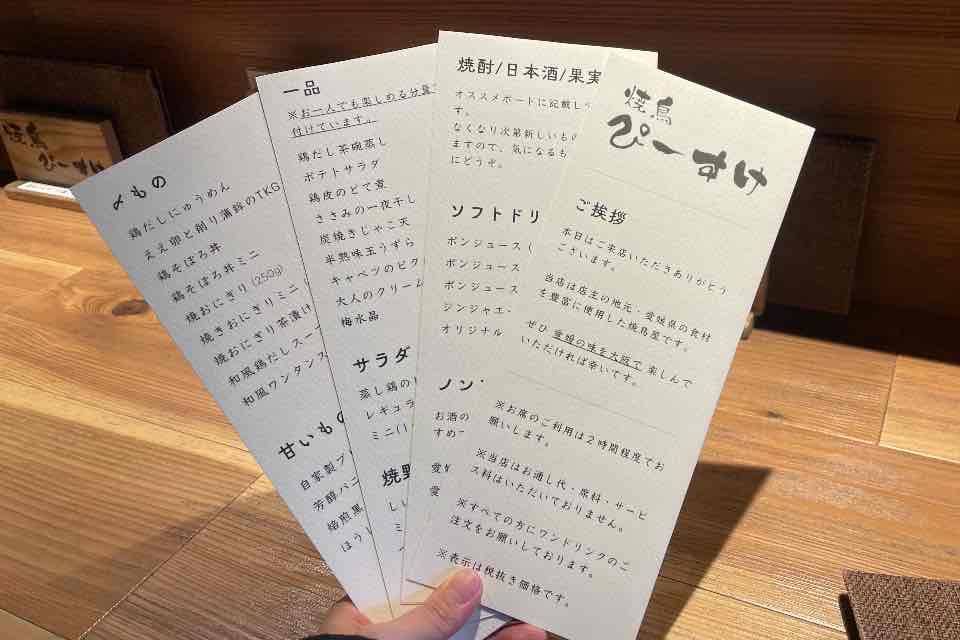 〆もの
鶏だしにゅうめん
ええ卵と削り蒲鉾のTKG
鶏そぼろ丼
鶏そぼろ丼ミニ
焼おにぎり(250g)
焼きおにぎりミニ
焼おにぎり茶漬け
和風鶏だしスー
和風ワンタンス
甘いもの
自家製プ
芳醇バニ
焙煎黒
ほう
一品
※お一人でも楽しめる分量
付けています。
鶏だし茶碗蒸し
ポテトサラダ
鶏皮のどて煮
ささみの一夜干し
炭焼きじゃこ天
半熟味玉うずら
キャベツのピク
大人のクリーム
梅水晶
サラダ
蒸し鶏の
レギュラ
ミニ(1
焼野
し
ミ
焼酎/日本酒/果実
オススメボードに記載し
す。
なくなり次第新しいもの
ますので、気になるも
にどうぞ。
ソフトドリ
ポンジュース(
ポンジュース
ポンジュース
ジンジャエ
オリジナル
ノン
お酒の
すめ
愛媛
愛
焼鳥
ぴーすけ
ご挨拶
本日はご来店いただきありがとう
ございます。
当店は店主の地元・愛媛県の食材
を豊富に使用した焼鳥屋です。
ぜひ 愛媛の味を大阪で 楽しんで
いただければ幸いです。
※お席のご利用は2時間程度でお
願いします。
※当店はお通し代・席料・サービ
ス料はいただいておりません。
※すべての方にワンドリンクのご
注文をお願いしております。
※表示は税抜き価格です。
焼鳥
ぴーすけ